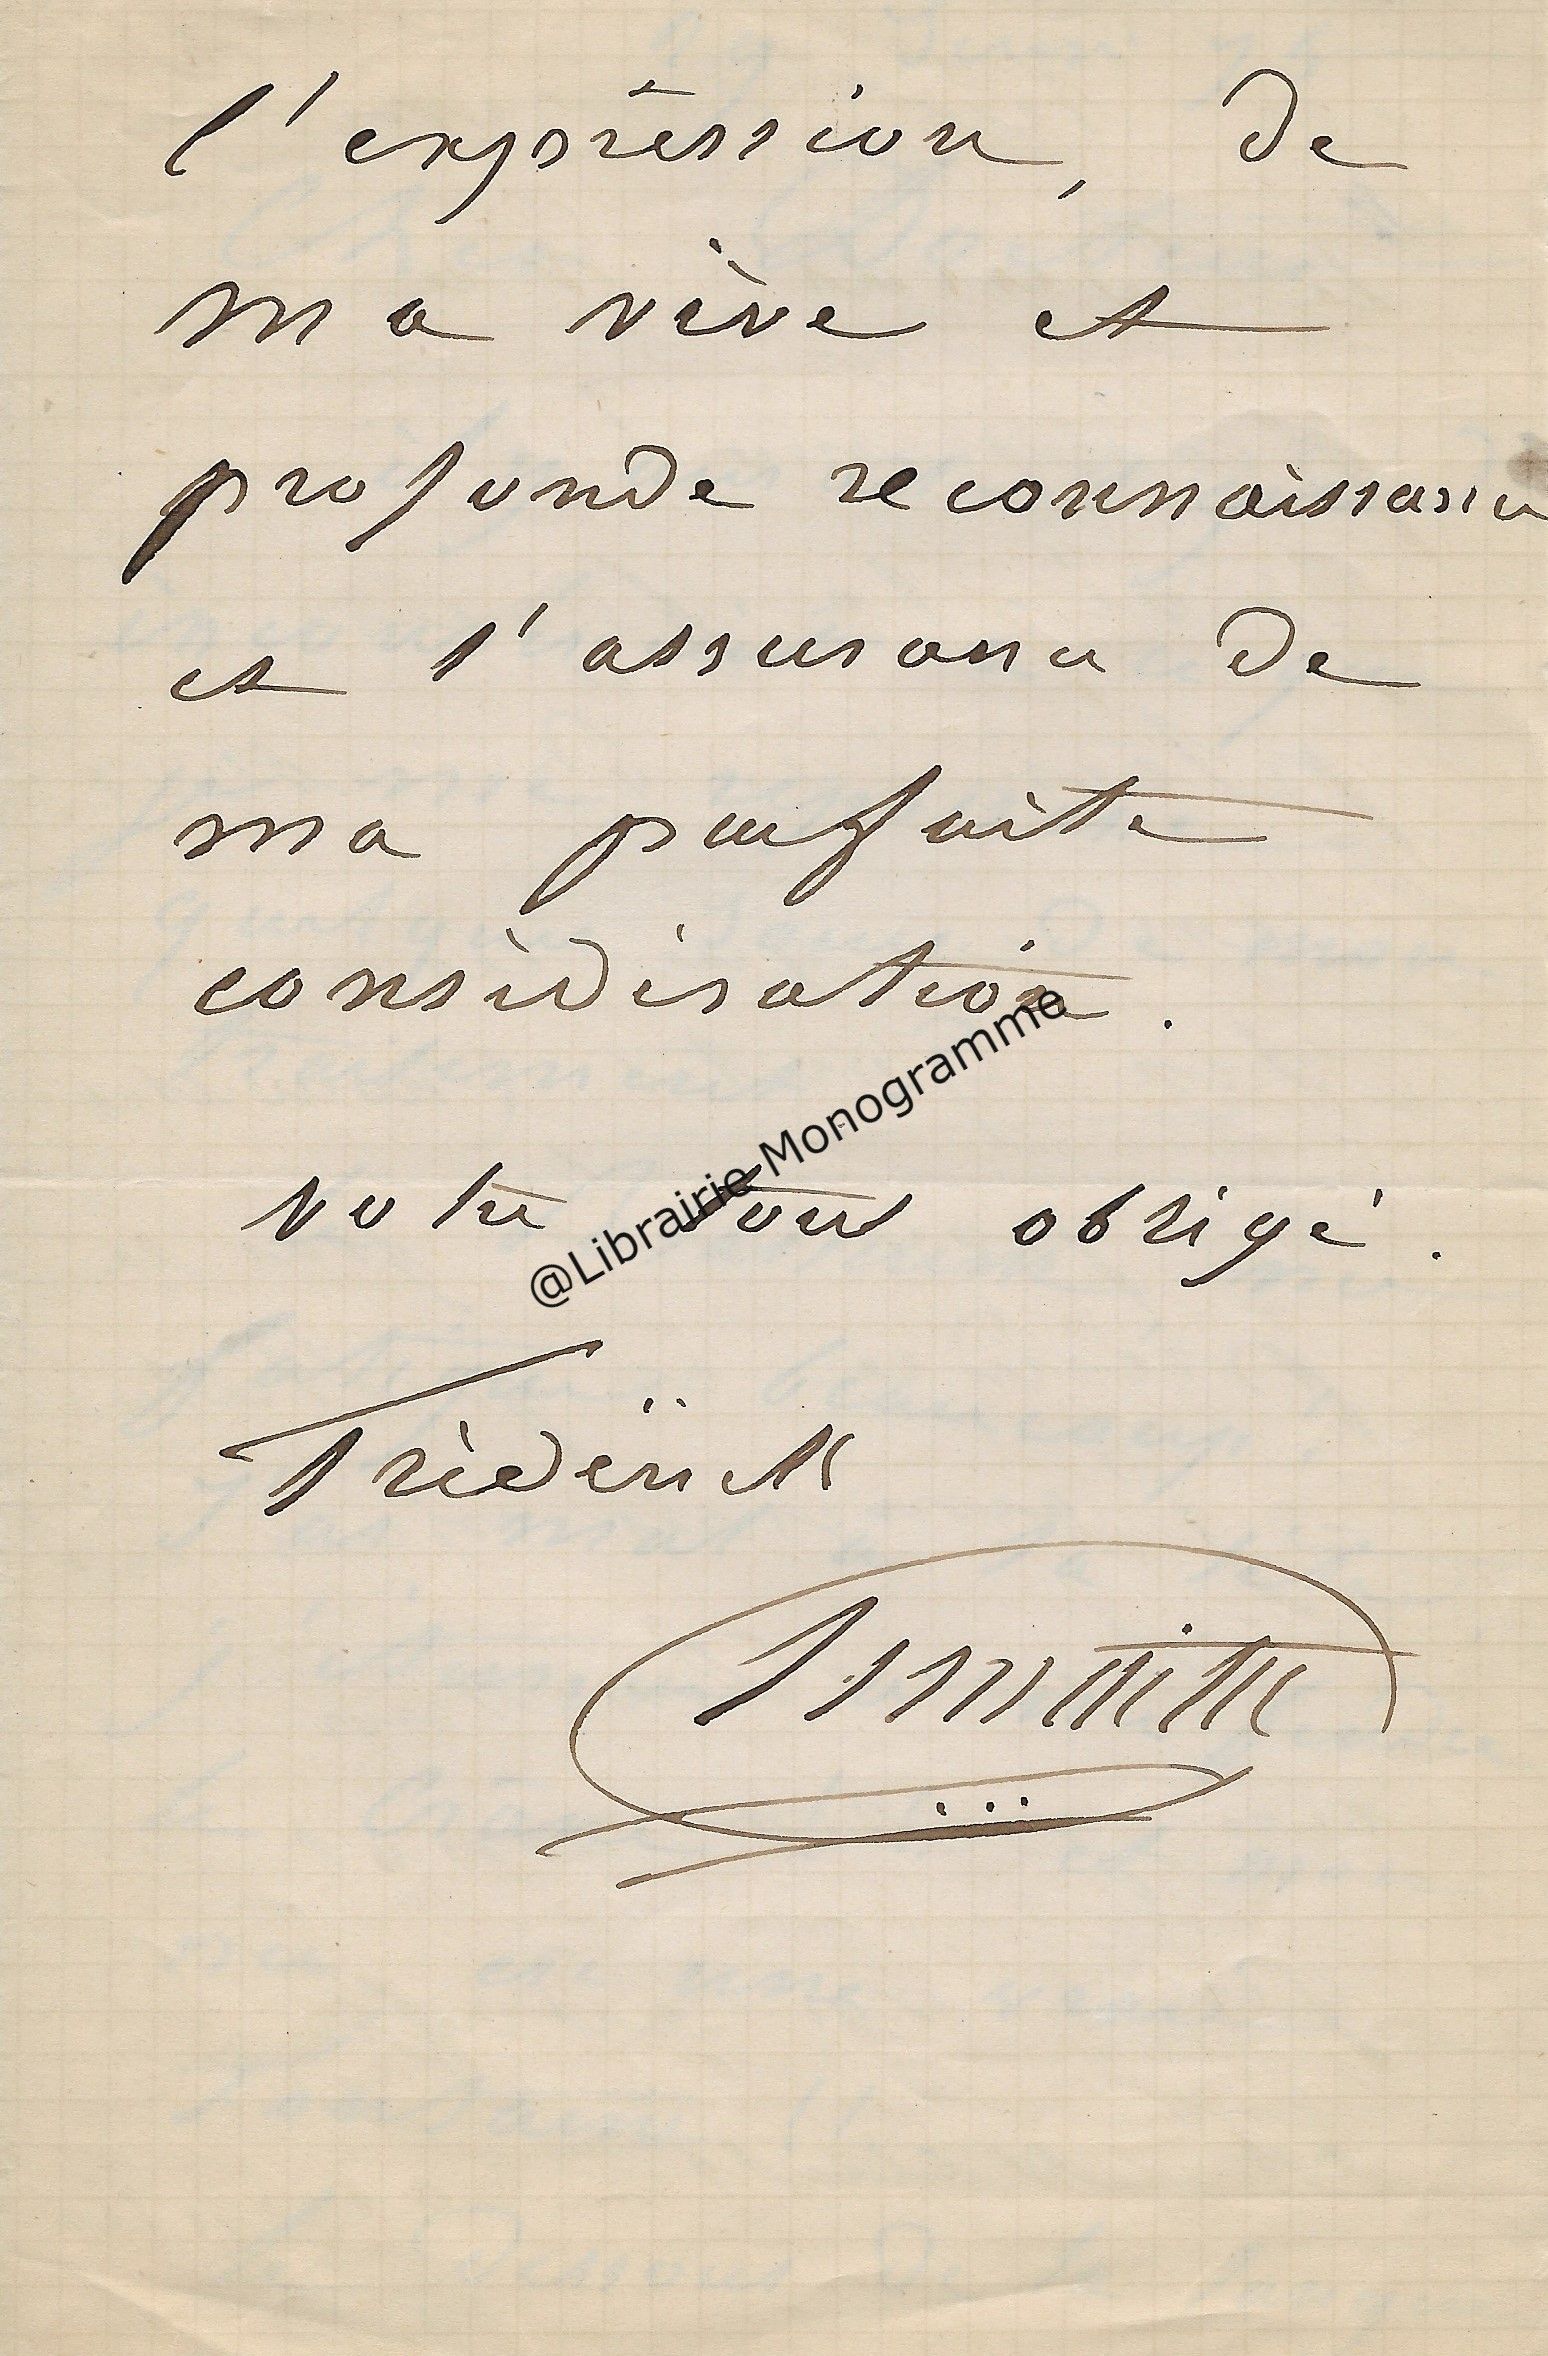 l'expression, de
ma vive et
profonde reconnaissance
et l'assurance de
ma parfaite
considération.
@Librairie Monogramme
votre tout obligé.
Frédérick
Lemaître